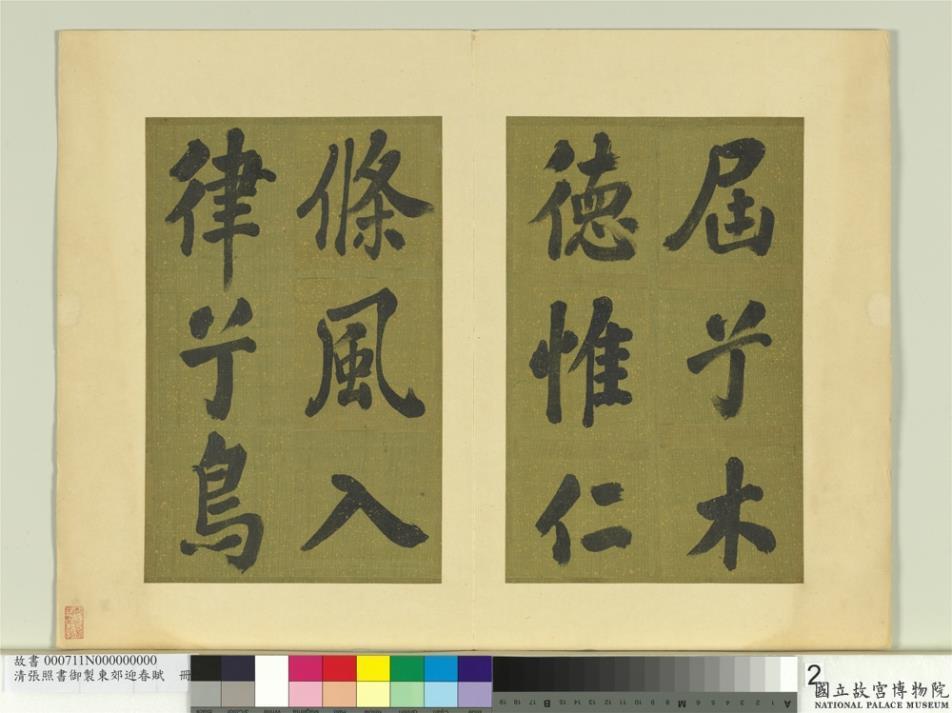 屆兮木
德惟仁
條風入
律兮鳥
故書 000711N000000000
清張照書御製東郊迎春賦 冊
2
國立故宮博物院
NATIONAL PALACE MUSEUM